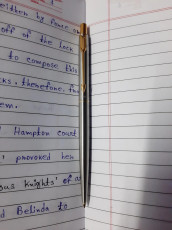 either by force or
off of the lock
to compose this
cks, therefore, the
em.
Hampton court
provoked her
ous knights' of a
d Belinda to